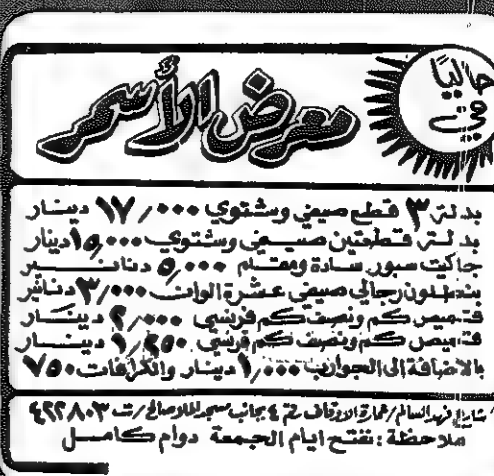 حاليًا
في
معرض الأسمر
بدلة ٣ قطع صيفي وشتوي ١٧/٠٠٠ دينار
بدلة قطعتين صيفي وشتوي ١٥/٠٠٠ دينار
جاكيت سبور سادة ومقلم ٥/٠٠٠ دنانير
بنطلون رجالي صيفي عشرة الوان ٣/٠٠٠ دنانير
قميص كم ونصف كم فرنسي ٢/٠٠٠ دينار
قميص كم ونصف كم فرنسي ١/٢٥٠ دينار
بالاضافة إلى الجوارب ١/٠٠٠ دينار والكرافات ٧٥٠
شارع فهد السالم / عمارة الاوقاف رقم ٤ بجانب مسجد الملا صالح / ت ٤٢٢٨٠٣
ملاحظة : نفتح ايام الجمعة دوام كامل